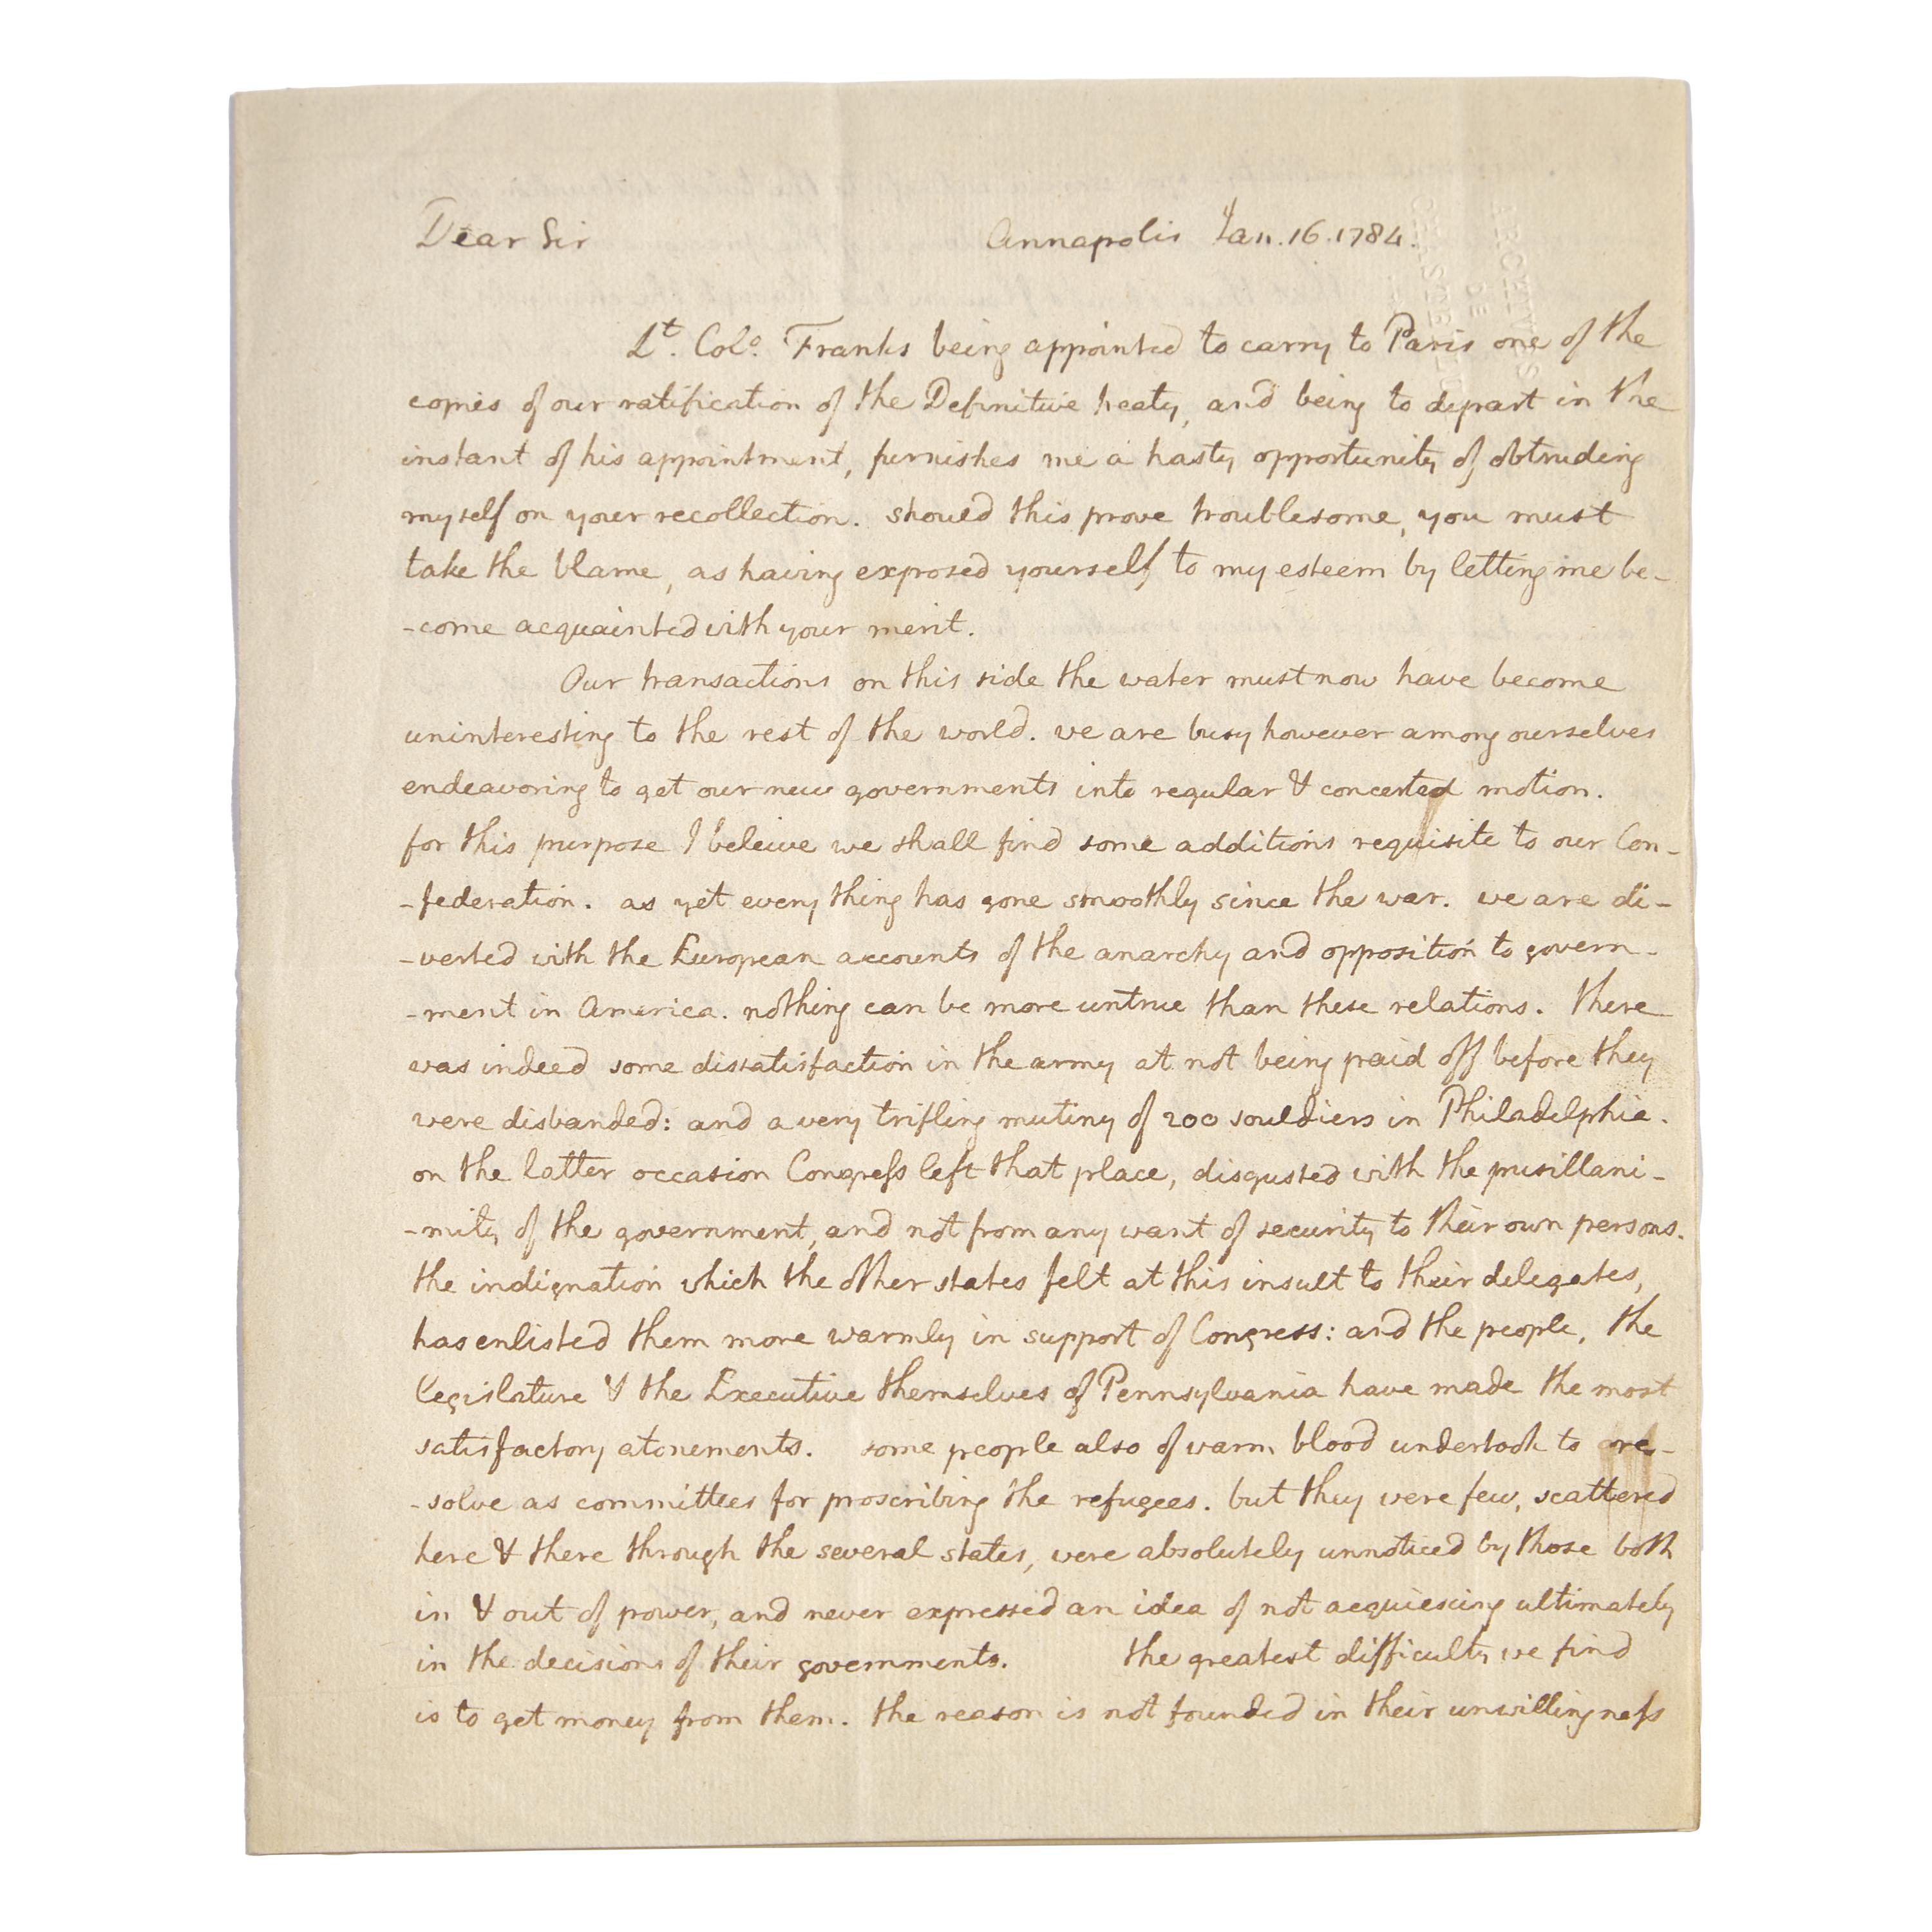 Dear Sir Annapolis Jan. 16. 1784.
Lt. Colo. Franks being appointed to carry to Paris one of the
copies of our ratification of the Definitive treaty, and being to depart in the
instant of his appointment, furnishes me a hasty opportunity of obtruding
myself on your recollection. should this prove troublesome, you must
take the blame, as having exposed yourself to my esteem by letting me be-
-come acquainted with your merit.
Our transactions on this side the water must now have become
uninteresting to the rest of the world. we are busy however among ourselves
endeavoring to get our new governments into regular & concerted motion.
for this purpose I beleive we shall find some additions requisite to our Con-
-federation. as yet every thing has gone smoothly since the war. we are di-
-verted with the European accounts of the anarchy and opposition to govern-
-ment in America. nothing can be more untrue than these relations. there
was indeed some dissatisfaction in the army at not being paid off before they
were disbanded: and a very trifling mutiny of 200 souldiers in Philadelphia.
on the latter occasion Congress left that place, disgusted with the pusillani-
-mity of the government, and not from any want of security to their own persons.
the indignation which the other states felt at this insult to their delegates,
has enlisted them more warmly in support of Congress: and the people, the
legislature & the Executive themselves of Pennsylvania have made the most
satisfactory atonements. some people also of warm blood undertook to re-
-solve as committees for proscribing the refugees. but they were few, scattered
here & there through the several states, were absolutely unnoticed by those both
in & out of power, and never expressed an idea of not acquiescing ultimately
in the decisions of their governments. the greatest difficulty we find
is to get money from them. the reason is not founded in their unwillingness